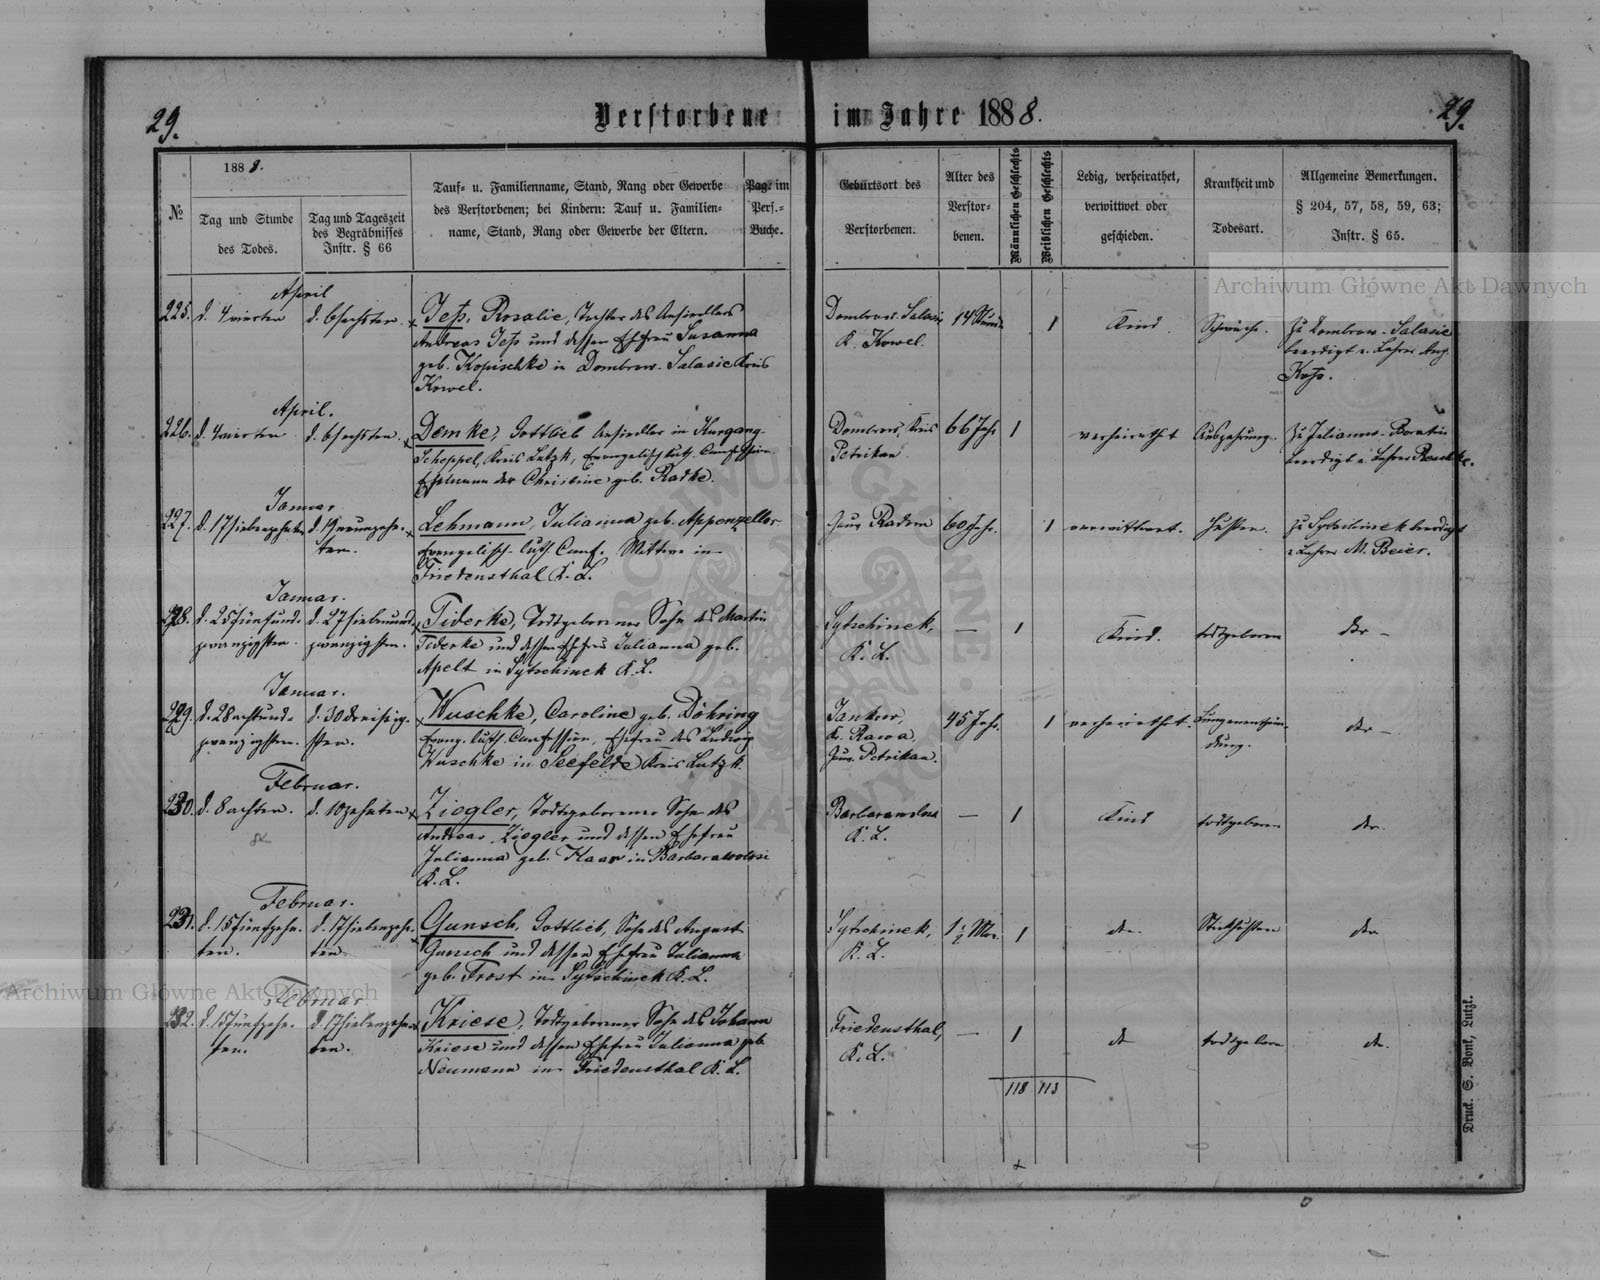 29.
Verstorbene im Jahre 1888.
29.
№
1888.
Tag und Stunde
des Todes.
Tag und Tageszeit
des Begräbnisses
Instr. § 66
Tauf- u. Familienname, Stand, Rang oder Gewerbe
des Verstorbenen; bei Kindern: Tauf u. Familien-
name, Stand, Rang oder Gewerbe der Eltern.
Pag. im
Pers.-
Buche.
Geburtsort des
Verstorbenen.
Alter des
Verstor-
benen.
Männlichen Geschlechts
Weiblichen Geschlechts
Ledig, verheirathet,
verwittwet oder
geschieden.
Krankheit und
Todesart.
Allgemeine Bemerkungen.
§ 204, 57, 58, 59, 63;
Instr. § 65.
April
225. d. 4 vierten
d. 6 sechsten.
Jeß, Rosalie, Tochter des Ansiedlers
Andreas Jeß und dessen Ehefrau Susanna
geb. Kopischke in Dombrow-Salasie Kreis
Kowel.
Dombrow-Salasie
K. Kowel.
14
1
Kind.
Schwäche.
Zu Dombrow-Salasie
beerdigt v. Lehrer Aug.
April.
226. d. 4 vierten
d. 6 sechsten.
Demke, Gottlieb Ansiedler in Kurgang-
Scheppel, Kreis Lutzk, Evangelisch luth. Confession
Ehemann der Christine geb. Radke.
Dombrow, Kreis
Petrikau
66 Jahr
1
verheirathet
Auszehrung.
Zu Julianow-Boratin
beerdigt v. Lehrer Reschke.
Januar
227. d. 17 siebenzehnten
d. 19 neunzehn-
ten.
Lehmann, Julianna geb. Appenzeller
Evangelisch-luth. Conf. Wittwe in
Friedensthal K. L.
Gouv. Radom
60 Jahr.
1
verwittwet.
Husten.
Zu Sytschinek beerdigt
v. Lehrer M. Beier.
Januar.
228. d. 25 fünfund-
zwanzigsten.
d. 27 siebenund-
zwanzigsten.
Tiderke, Todtgeborener Sohn des Martin
Tiderke und dessen Ehefrau Julianna geb.
Apelt in Sytschinek K. L.
Sytschinek,
K. L.
—
1
Kind.
todtgeboren
dto —
Januar.
229. d. 28 achtund-
zwanzigsten.
d. 30 dreißig-
sten.
Wuschke, Caroline geb. Döhring
Evang. luth. Confession, Ehefrau des Ludwig
Wuschke in Seefelde Kreis Lutzk.
Jankow,
Kr. Rawa,
Gouv. Petrikau.
45 Jahr.
1
verheirathet.
Lungenentzün-
dung.
dto —
Februar.
230. d. 8 achten.
d. 10 zehnten
Ziegler, Todtgeborener Sohn des
Andreas Ziegler und dessen Ehefrau
Julianna geb. Haar in Barbarawolosi
K. L.
Barbarawolosi
K. L.
—
1
Kind
todtgeboren
dto.
Februar.
231. d. 15 fünfzehn-
ten.
d. 17 siebenzehn-
ten.
Gunsch, Gottlieb, Sohn des August
Gunsch und dessen Ehefrau Julianna
geb. Frost in Sytschinek K. L.
Sytschinek,
K. L.
1½ Mon.
1
dto.
Stickhusten
dto
Februar
232. d. 15 fünfzehn-
ten.
d. 17 siebenzehn-
ten.
Kriese, Todtgeborener Sohn des Johann
Kriese und dessen Ehefrau Julianna geb.
Neumann in Friedensthal K. L.
Friedensthal,
K. L.
—
1
dto
todtgeboren
dto.
118 113
Druck. S. Bonk, Lutzk.
Archiwum Główne Akt Dawnych
Archiwum Główne Akt Dawnych